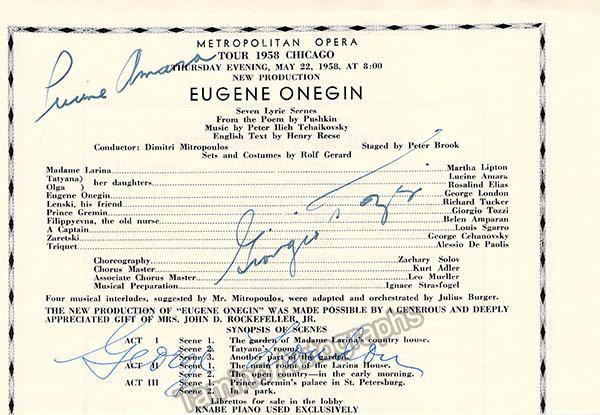 METROPOLITAN OPERA
TOUR 1958 CHICAGO
THURSDAY EVENING, MAY 22, 1958, AT 8:00
NEW PRODUCTION
Lucine Amara
EUGENE ONEGIN
Seven Lyric Scenes
From the Poem by Pushkin
Music by Peter Ilich Tchaikovsky
English Text by Henry Reese
Conductor: Dimitri Mitropoulos Staged by Peter Brook
Sets and Costumes by Rolf Gerard
Madame Larina Martha Lipton
Tatyana) her daughters Lucine Amara
Olga ) Rosalind Elias
Eugene Onegin George London
Lenski, his friend Richard Tucker
Prince Gremin Giorgio Tozzi
Filippyevna, the old nurse Belen Amparan
A Captain Louis Sgarro
Zaretski George Cehanovsky
Triquet Alessio De Paolis
Giorgio Tozzi
Choreography Zachary Solov
Chorus Master Kurt Adler
Associate Chorus Master Leo Mueller
Musical Preparation Ignace Strasfogel
Four musical interludes, suggested by Mr. Mitropoulos, were adapted and orchestrated by Julius Burger.
THE NEW PRODUCTION OF "EUGENE ONEGIN" WAS MADE POSSIBLE BY A GENEROUS AND DEEPLY
APPRECIATED GIFT OF MRS. JOHN D. ROCKEFELLER, JR.
SYNOPSIS OF SCENES
ACT I Scene 1. The garden of Madame Larina's country house.
Scene 2. Tatyana's room.
Scene 3. Another part of the garden.
George London
ACT II Scene 1. The main room of the Larina House.
Scene 2. The country—in the early morning.
ACT III Scene 1. Prince Gremin's palace in St. Petersburg.
Scene 2. In a park.
Librettos for sale in the lobby
KNABE PIANO USED EXCLUSIVELY
Tamino Autographs